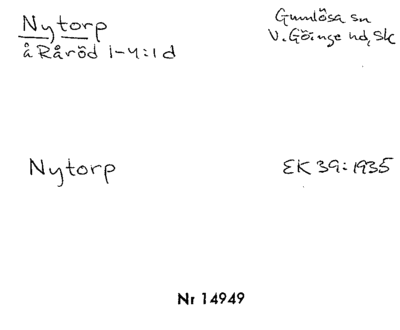 Nytorp
å Råröd 1-4:1 d
Gumlösa sn
V. Göinge hd, Sk
Nytorp
EK 39:1935
Nr 14949